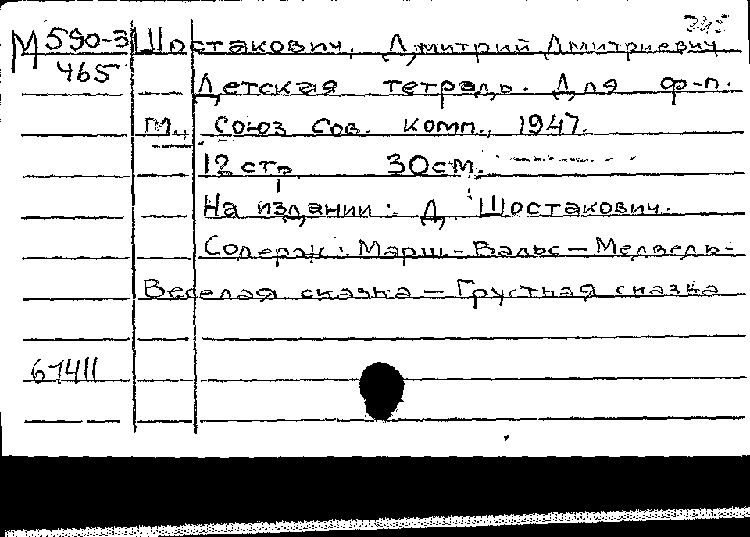 345
М 590-3 Шостакович, Дмитрий Дмитриевич
465
Детская тетрадь. Для ф-п.
М., Союз Сов. комп., 1947.
12 стр 30см.
На издании: Д. Шостакович.
Содерж: Марш - Вальс - Медведь -
Веселая сказка - Грустная сказка
67411